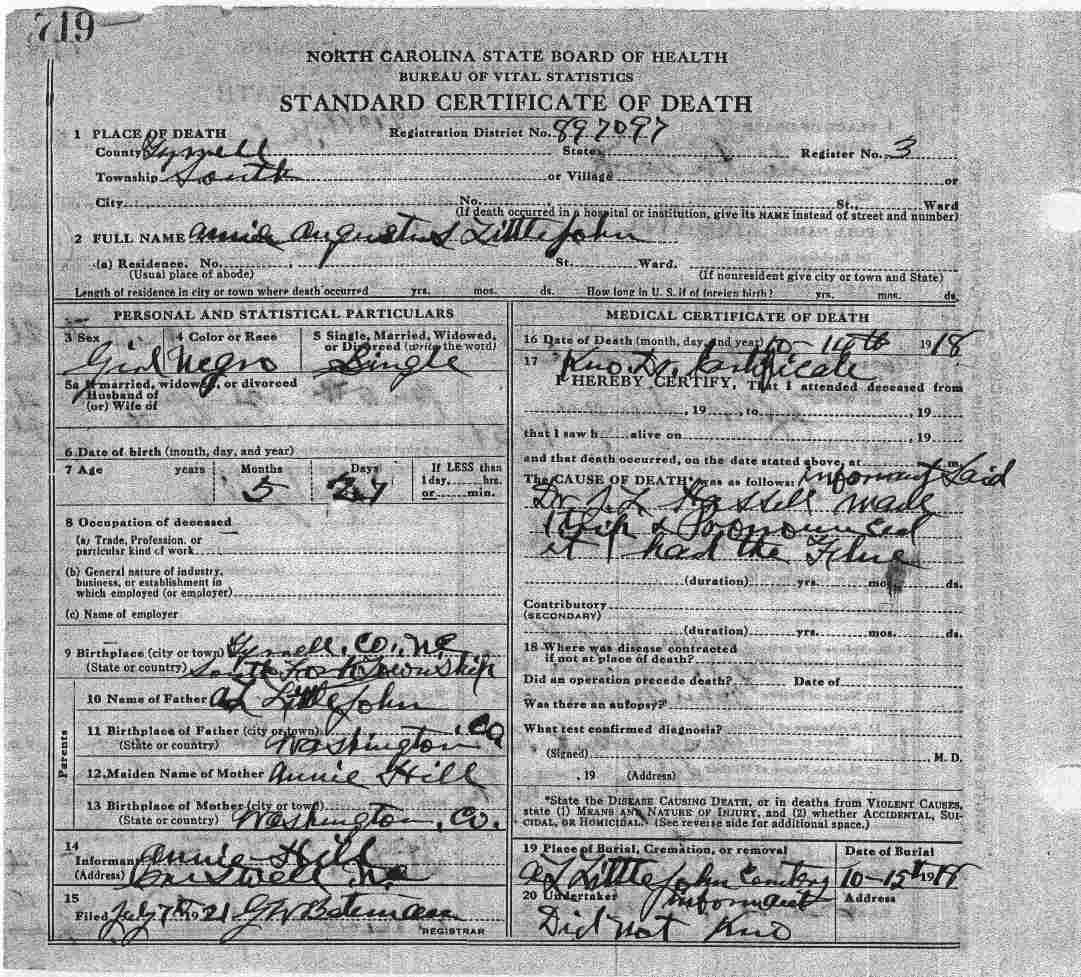 719
NORTH CAROLINA STATE BOARD OF HEALTH
BUREAU OF VITAL STATISTICS
STANDARD CERTIFICATE OF DEATH
1 PLACE OF DEATH Registration District No. 897097
County Tyrrell State Register No. 3
Township South or Village or
City No. St., Ward
(If death occurred in a hospital or institution, give its NAME instead of street and number)
2 FULL NAME Annie Augustus LittleJohn
(a) Residence. No. St. Ward.
(Usual place of abode) (If nonresident give city or town and State)
Length of residence in city or town where death occurred yrs. mos. ds. How long in U. S. if of foreign birth? yrs. mos. ds.
PERSONAL AND STATISTICAL PARTICULARS
3 Sex 4 Color or Race 5 Single, Married, Widowed,
or Divorced (write the word)
Girl Negro Single
5a If married, widowed, or divorced
Husband of
(or) Wife of
6 Date of birth (month, day, and year)
7 Age years Months Days If LESS than
1 day, hrs.
5 27 or min.
8 Occupation of deceased
(a) Trade, Profession, or
particular kind of work
(b) General nature of industry,
business, or establishment in
which employed (or employer)
(c) Name of employer
9 Birthplace (city or town) Tyrrell. Co., NC
(State or country) South Fork Township
Parents
10 Name of Father AL LittleJohn
11 Birthplace of Father (city or town)
(State or country) Washington, Co
12 Maiden Name of Mother Annie Hill
13 Birthplace of Mother (city or town)
(State or country) Washington, Co.
14
Informant Annie Hill
(Address) Creswell NC
15
Filed July 7th 1921 GW Bateman
REGISTRAR
MEDICAL CERTIFICATE OF DEATH
16 Date of Death (month, day, and year) 10-14th 1918
17 Kno. Dr. Certificate
I HEREBY CERTIFY, That I attended deceased from
, 19 , to , 19
that I saw h alive on , 19
and that death occurred, on the date stated above, at m.
The CAUSE OF DEATH* was as follows: informant Said
Dr. J. L. Hassell made
trip & Pronounced
it had the Flue
(duration) yrs. mos. ds.
Contributory
(SECONDARY)
(duration) yrs. mos. ds.
18 Where was disease contracted
if not at place of death?
Did an operation precede death? Date of
Was there an autopsy?
What test confirmed diagnosis?
(Signed) M. D.
, 19 (Address)
*State the DISEASE CAUSING DEATH, or in deaths from VIOLENT CAUSES,
state (1) MEANS AND NATURE OF INJURY, and (2) whether ACCIDENTAL, SUI-
CIDAL, OR HOMICIDAL. (See reverse side for additional space.)
19 Place of Burial, Cremation, or removal Date of Burial
AL LittleJohn Cemtery 10-15th 1918
20 Undertaker informant Address
Did not Kno